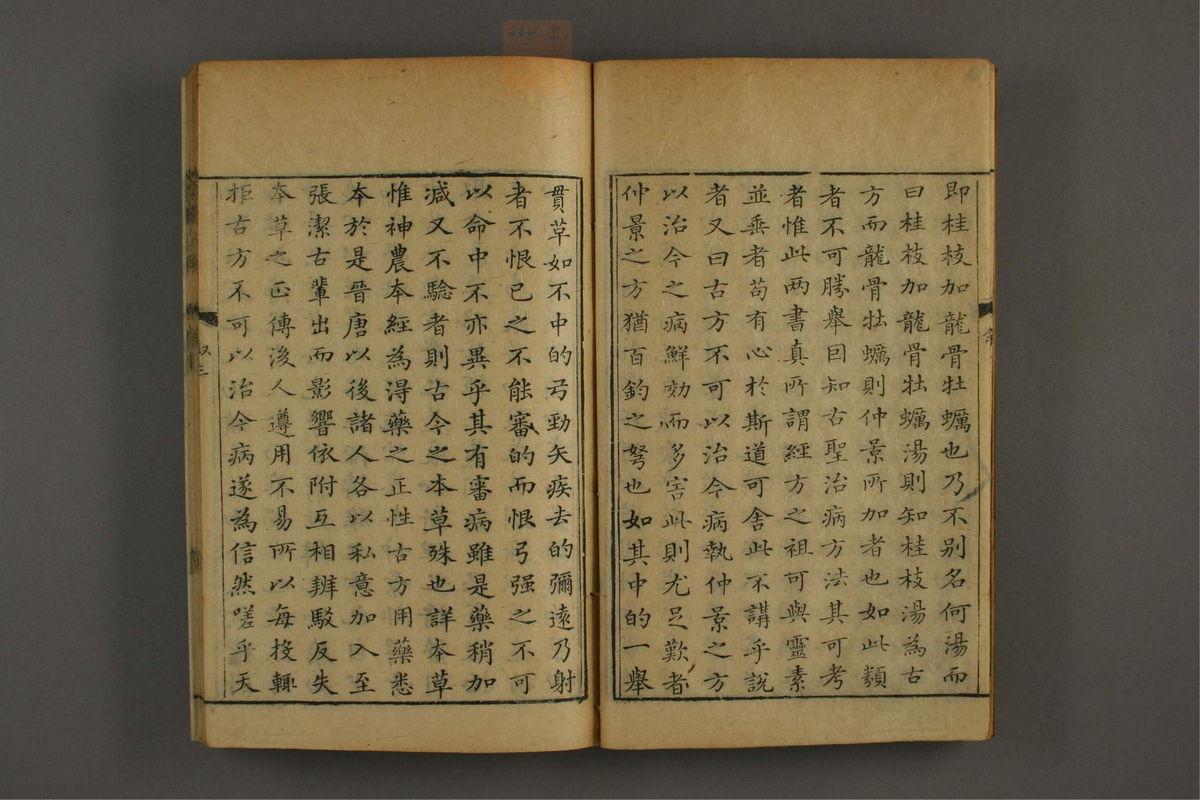 即桂枝加龍骨牡蠣也乃不别名何湯而
曰桂枝加龍骨牡蠣湯則知桂枝湯為古
方而龍骨牡蠣則仲景所加者也如此類
者不可勝舉因知古聖治病方法其可考
者惟此两書真所謂經方之祖可與靈素
並垂者苟有心於斯道可舍此不講乎說
者又曰古方不可以治今病執仲景之方
以治今之病鮮効而多害此則尤足歎者
仲景之方猶百鈞之弩也如其中的一舉
貫革如不中的弓勁矢疾去的彌遠乃射
者不恨己之不能審的而恨弓强之不可
以命中不亦異乎其有審病雖是藥稍加
減又不驗者則古今之本草殊也詳本草
惟神農本經為得藥之正性古方用藥悉
本於是晉唐以後諸人各以私意加入至
張潔古輩出而影響依附互相辨駁反失
本草之正傳後人遵用不易所以每投輒
拒古方不可以治今病遂為信然嗟乎天
叙三